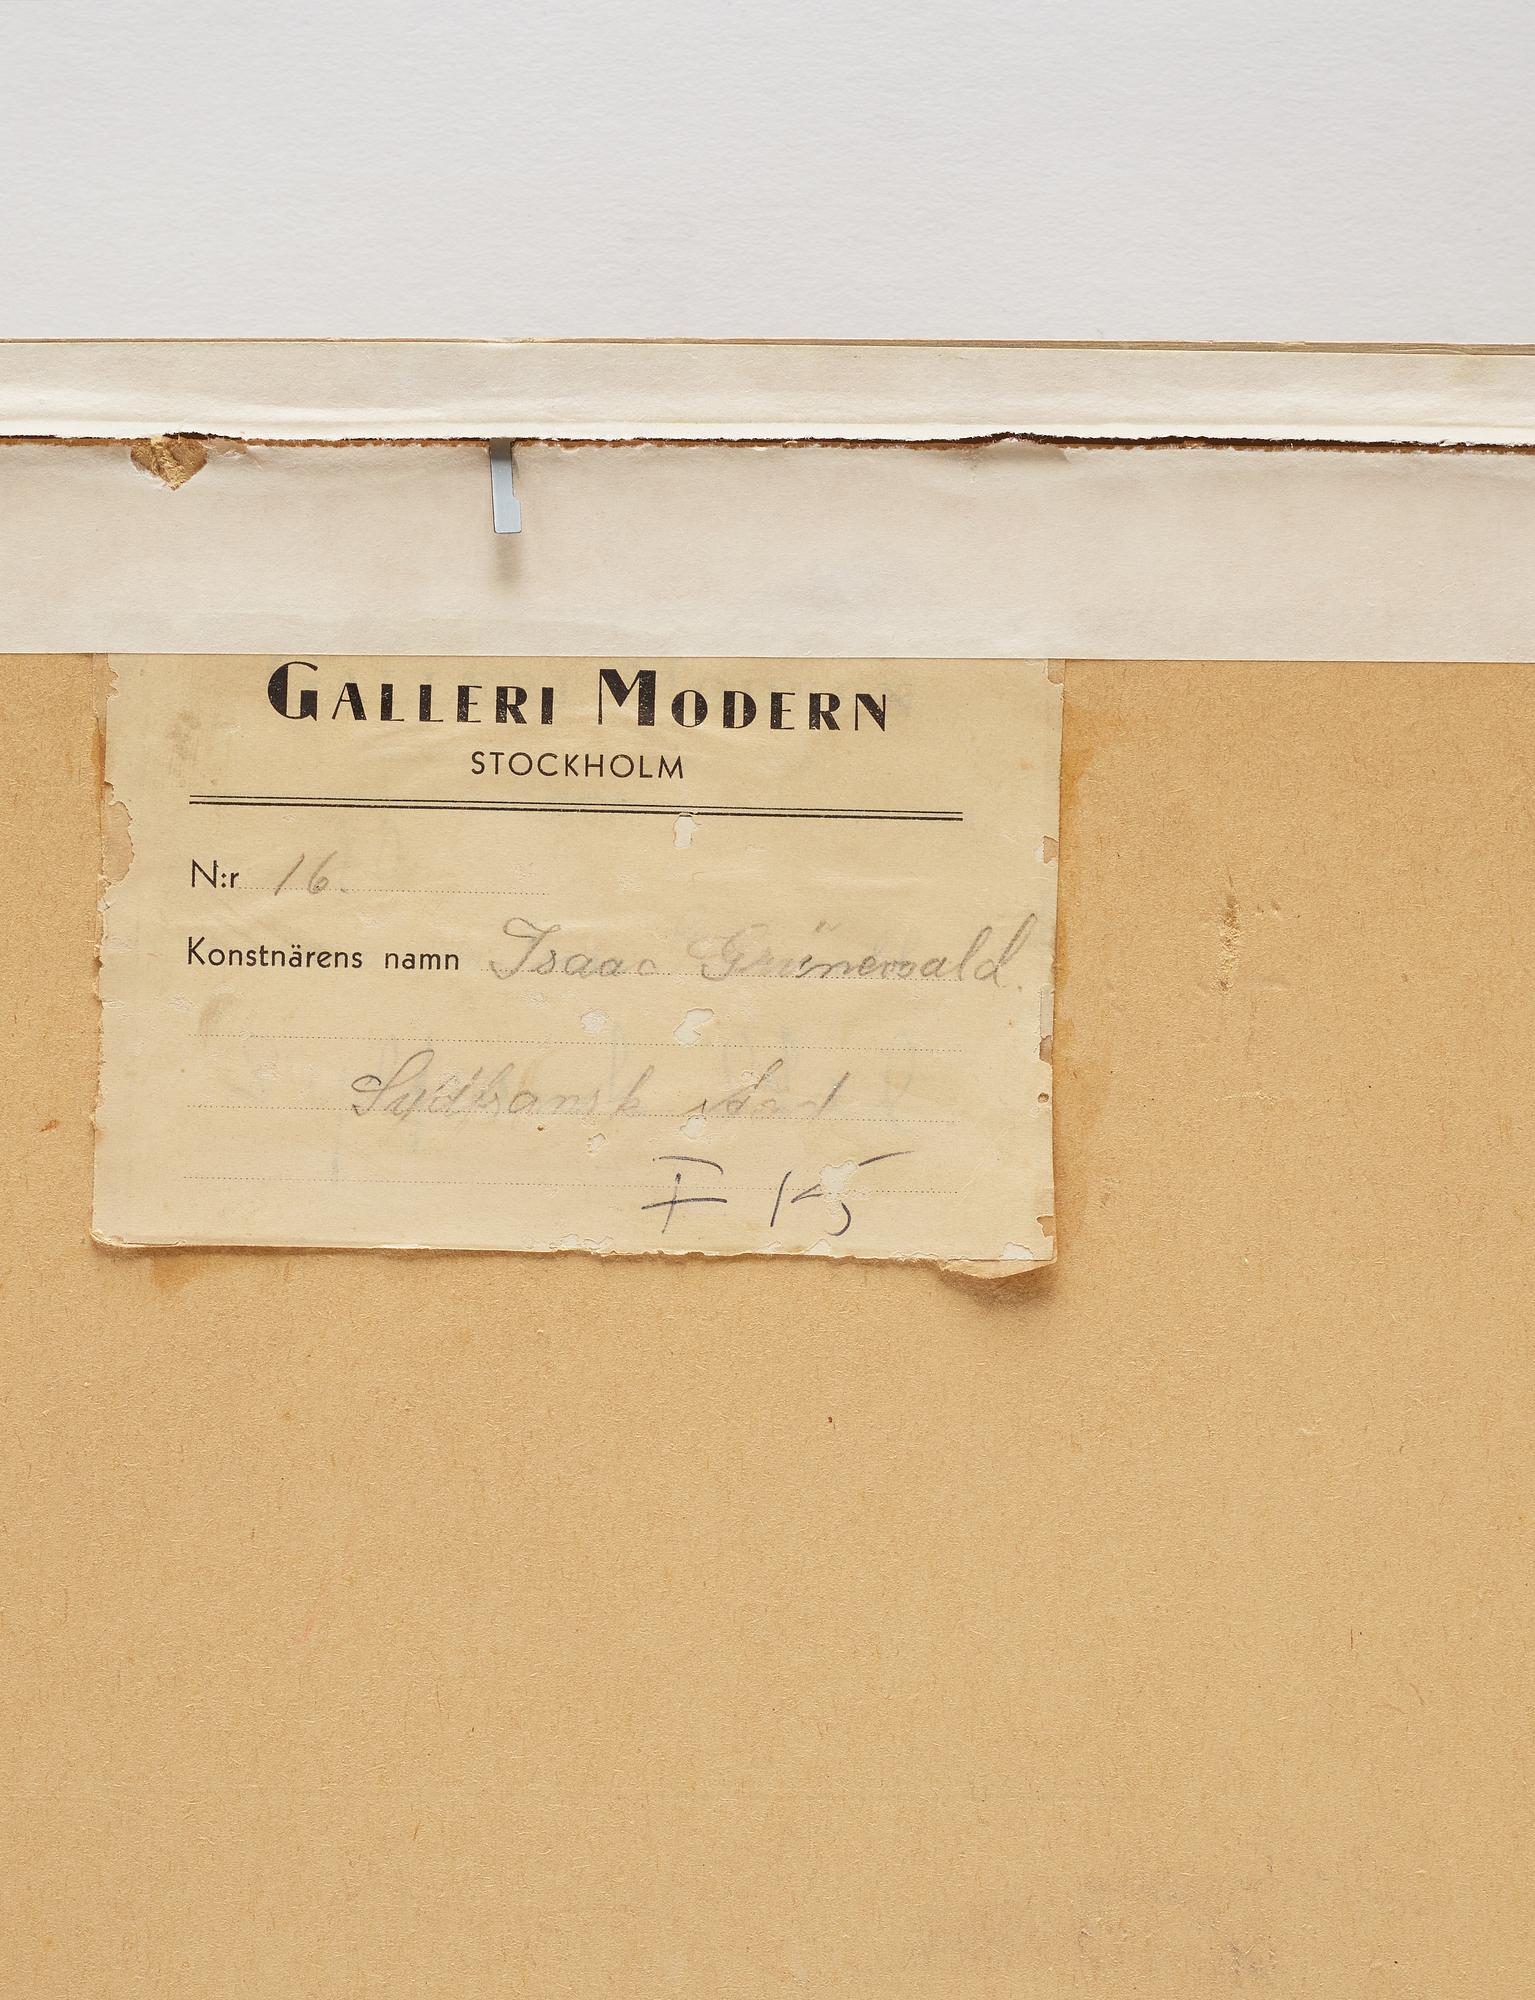 GALLERI MODERN
STOCKHOLM
N:r 16.
Konstnärens namn Isaac Grünewald.
Sydfransk stad
F